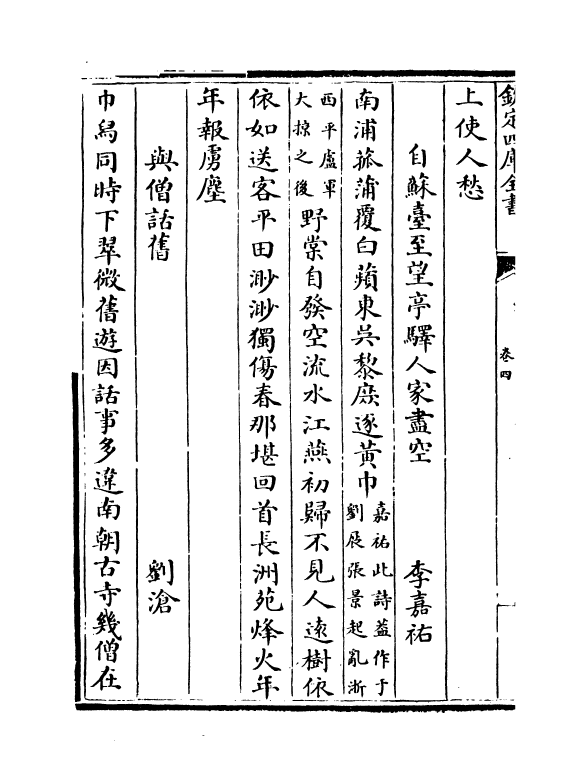 欽定四庫全書
卷四
上使人愁
自蘇臺至望亭驛人家盡空 李嘉祐
南浦菰蒲覆白蘋東吳黎庶逐黃巾嘉祐此詩葢作于劉展張景起亂浙
西平盧軍大掠之後野棠自發空流水江燕初歸不見人遠樹依
依如送客平田渺渺獨傷春那堪回首長洲苑烽火年
年報虜塵
與僧話舊 劉滄
巾舄同時下翠微舊遊因話事多違南朝古寺幾僧在